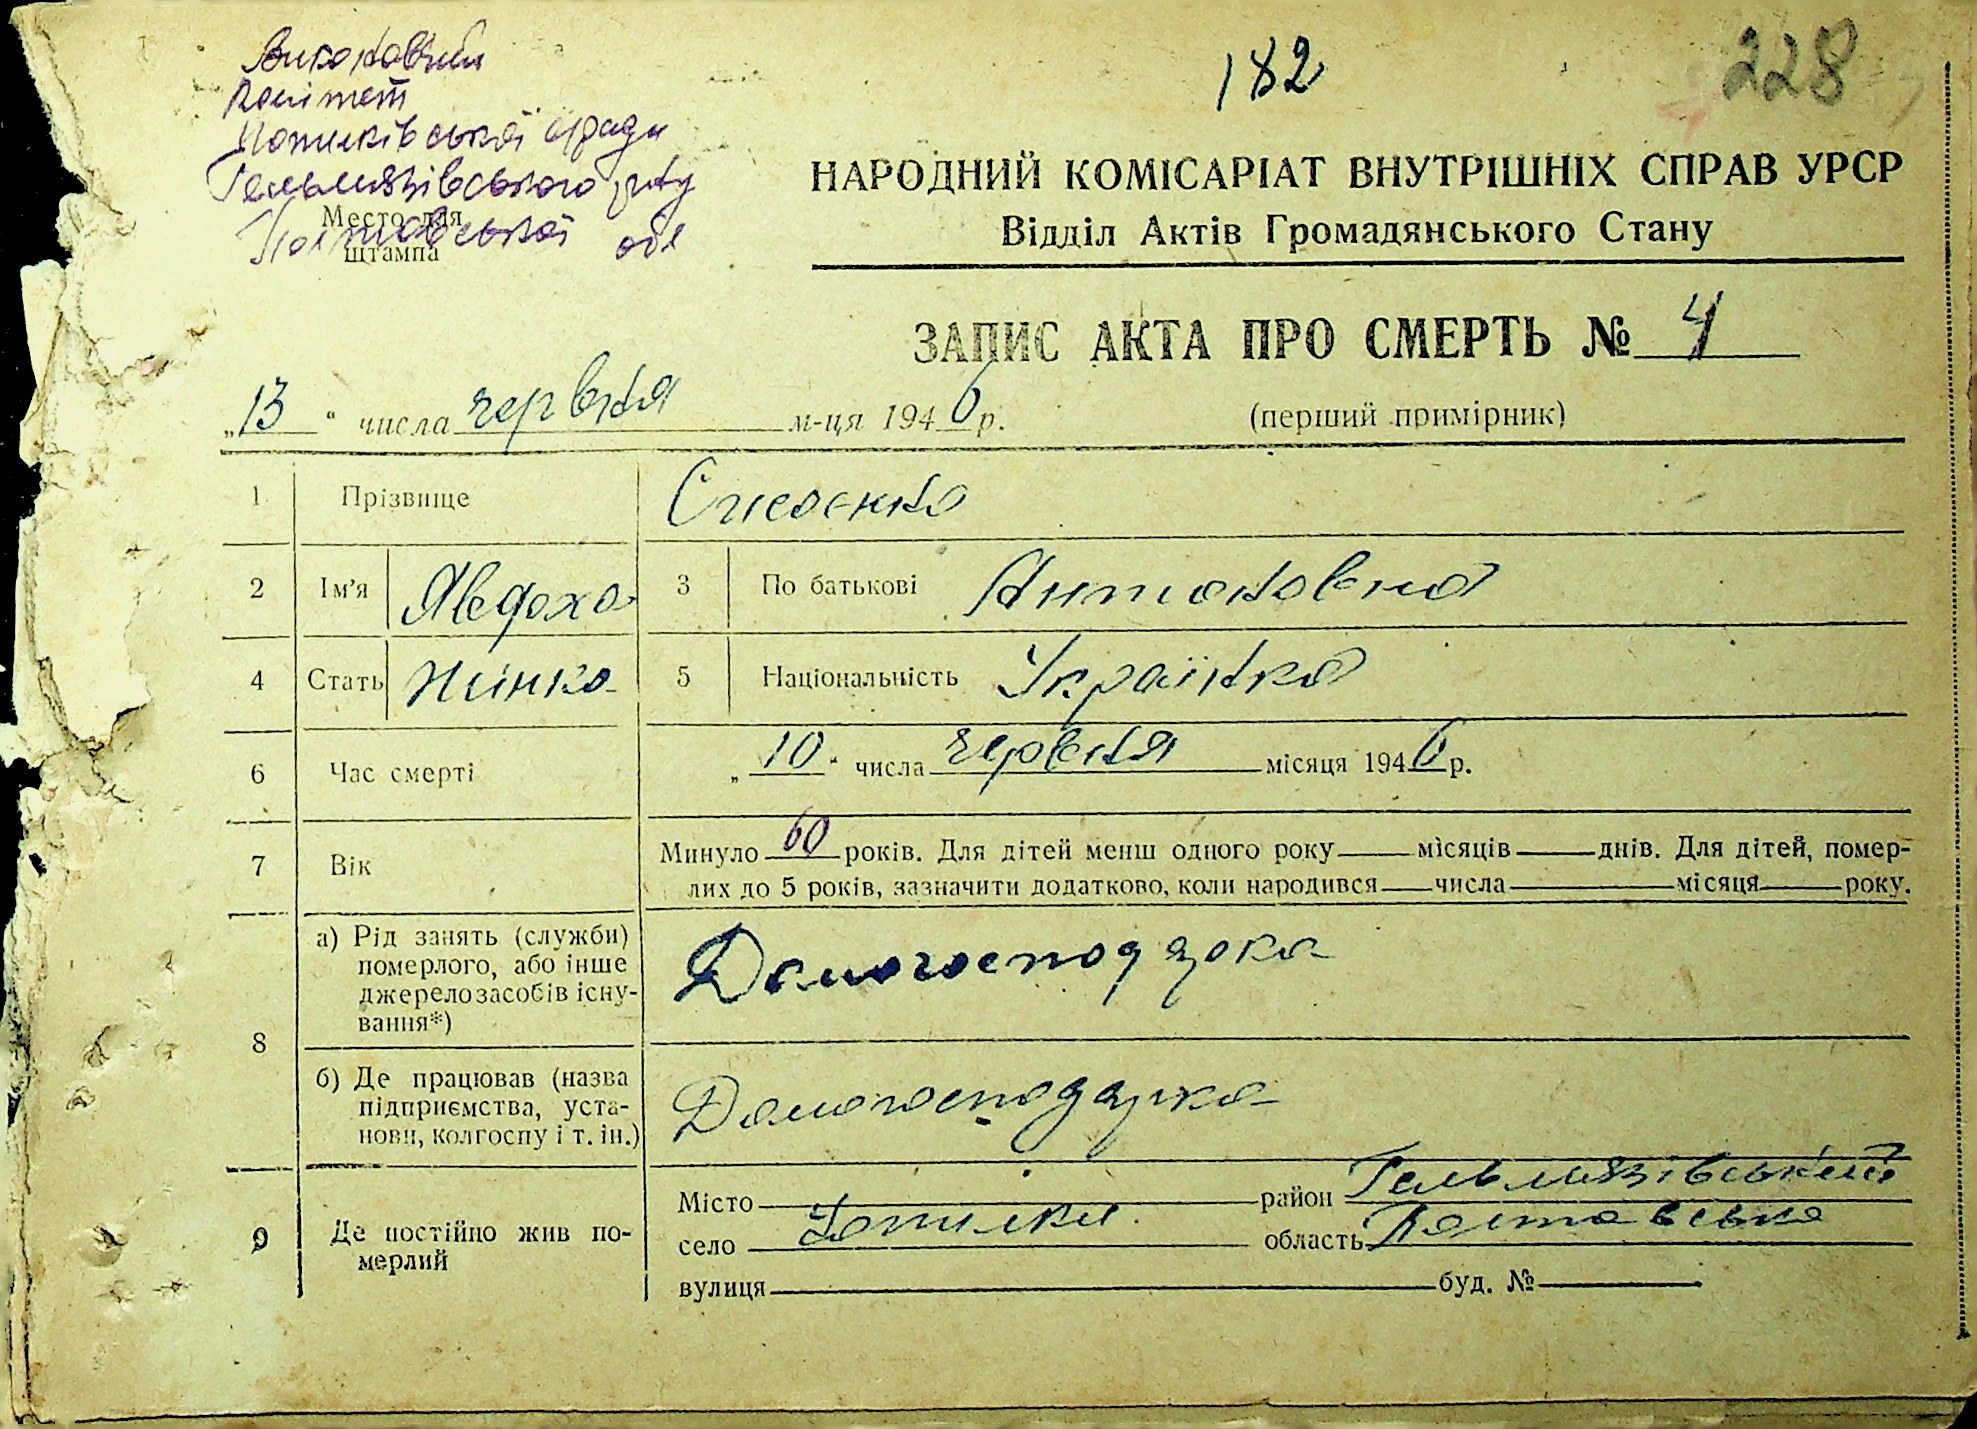 182
228
Виконавчий
Комітет
ської с/ради
Гельмязівського р-ну
Полтавської обл
Место для
штампа
НАРОДНИЙ КОМІСАРІАТ ВНУТРІШНІХ СПРАВ УРСР
Відділ Актів Громадянського Стану
ЗАПИС АКТА ПРО СМЕРТЬ № 4
„13“ числа червня м-ця 1946 р.
(перший примірник)
1 Прізвище
2 Ім'я Явдоха 3 По батькові Антоновна
4 Стать жінка 5 Національність Українка
6 Час смерті „10“ числа червня місяця 1946 р.
7 Вік Минуло 60 років. Для дітей менш одного року місяців днів. Для дітей, помер-
лих до 5 років, зазначити додатково, коли народився числа місяця року.
8 а) Рід занять (служби)
померлого, або інше
джерело засобів існу-
вання*)
Домогосподарка
б) Де працював (назва
підприємства, уста-
нови, колгоспу і т. ін.)
Домогосподарка
9 Де постійно жив по-
мерлий
Місто район Гельмязівський
село область Полтавська
вулиця буд. №